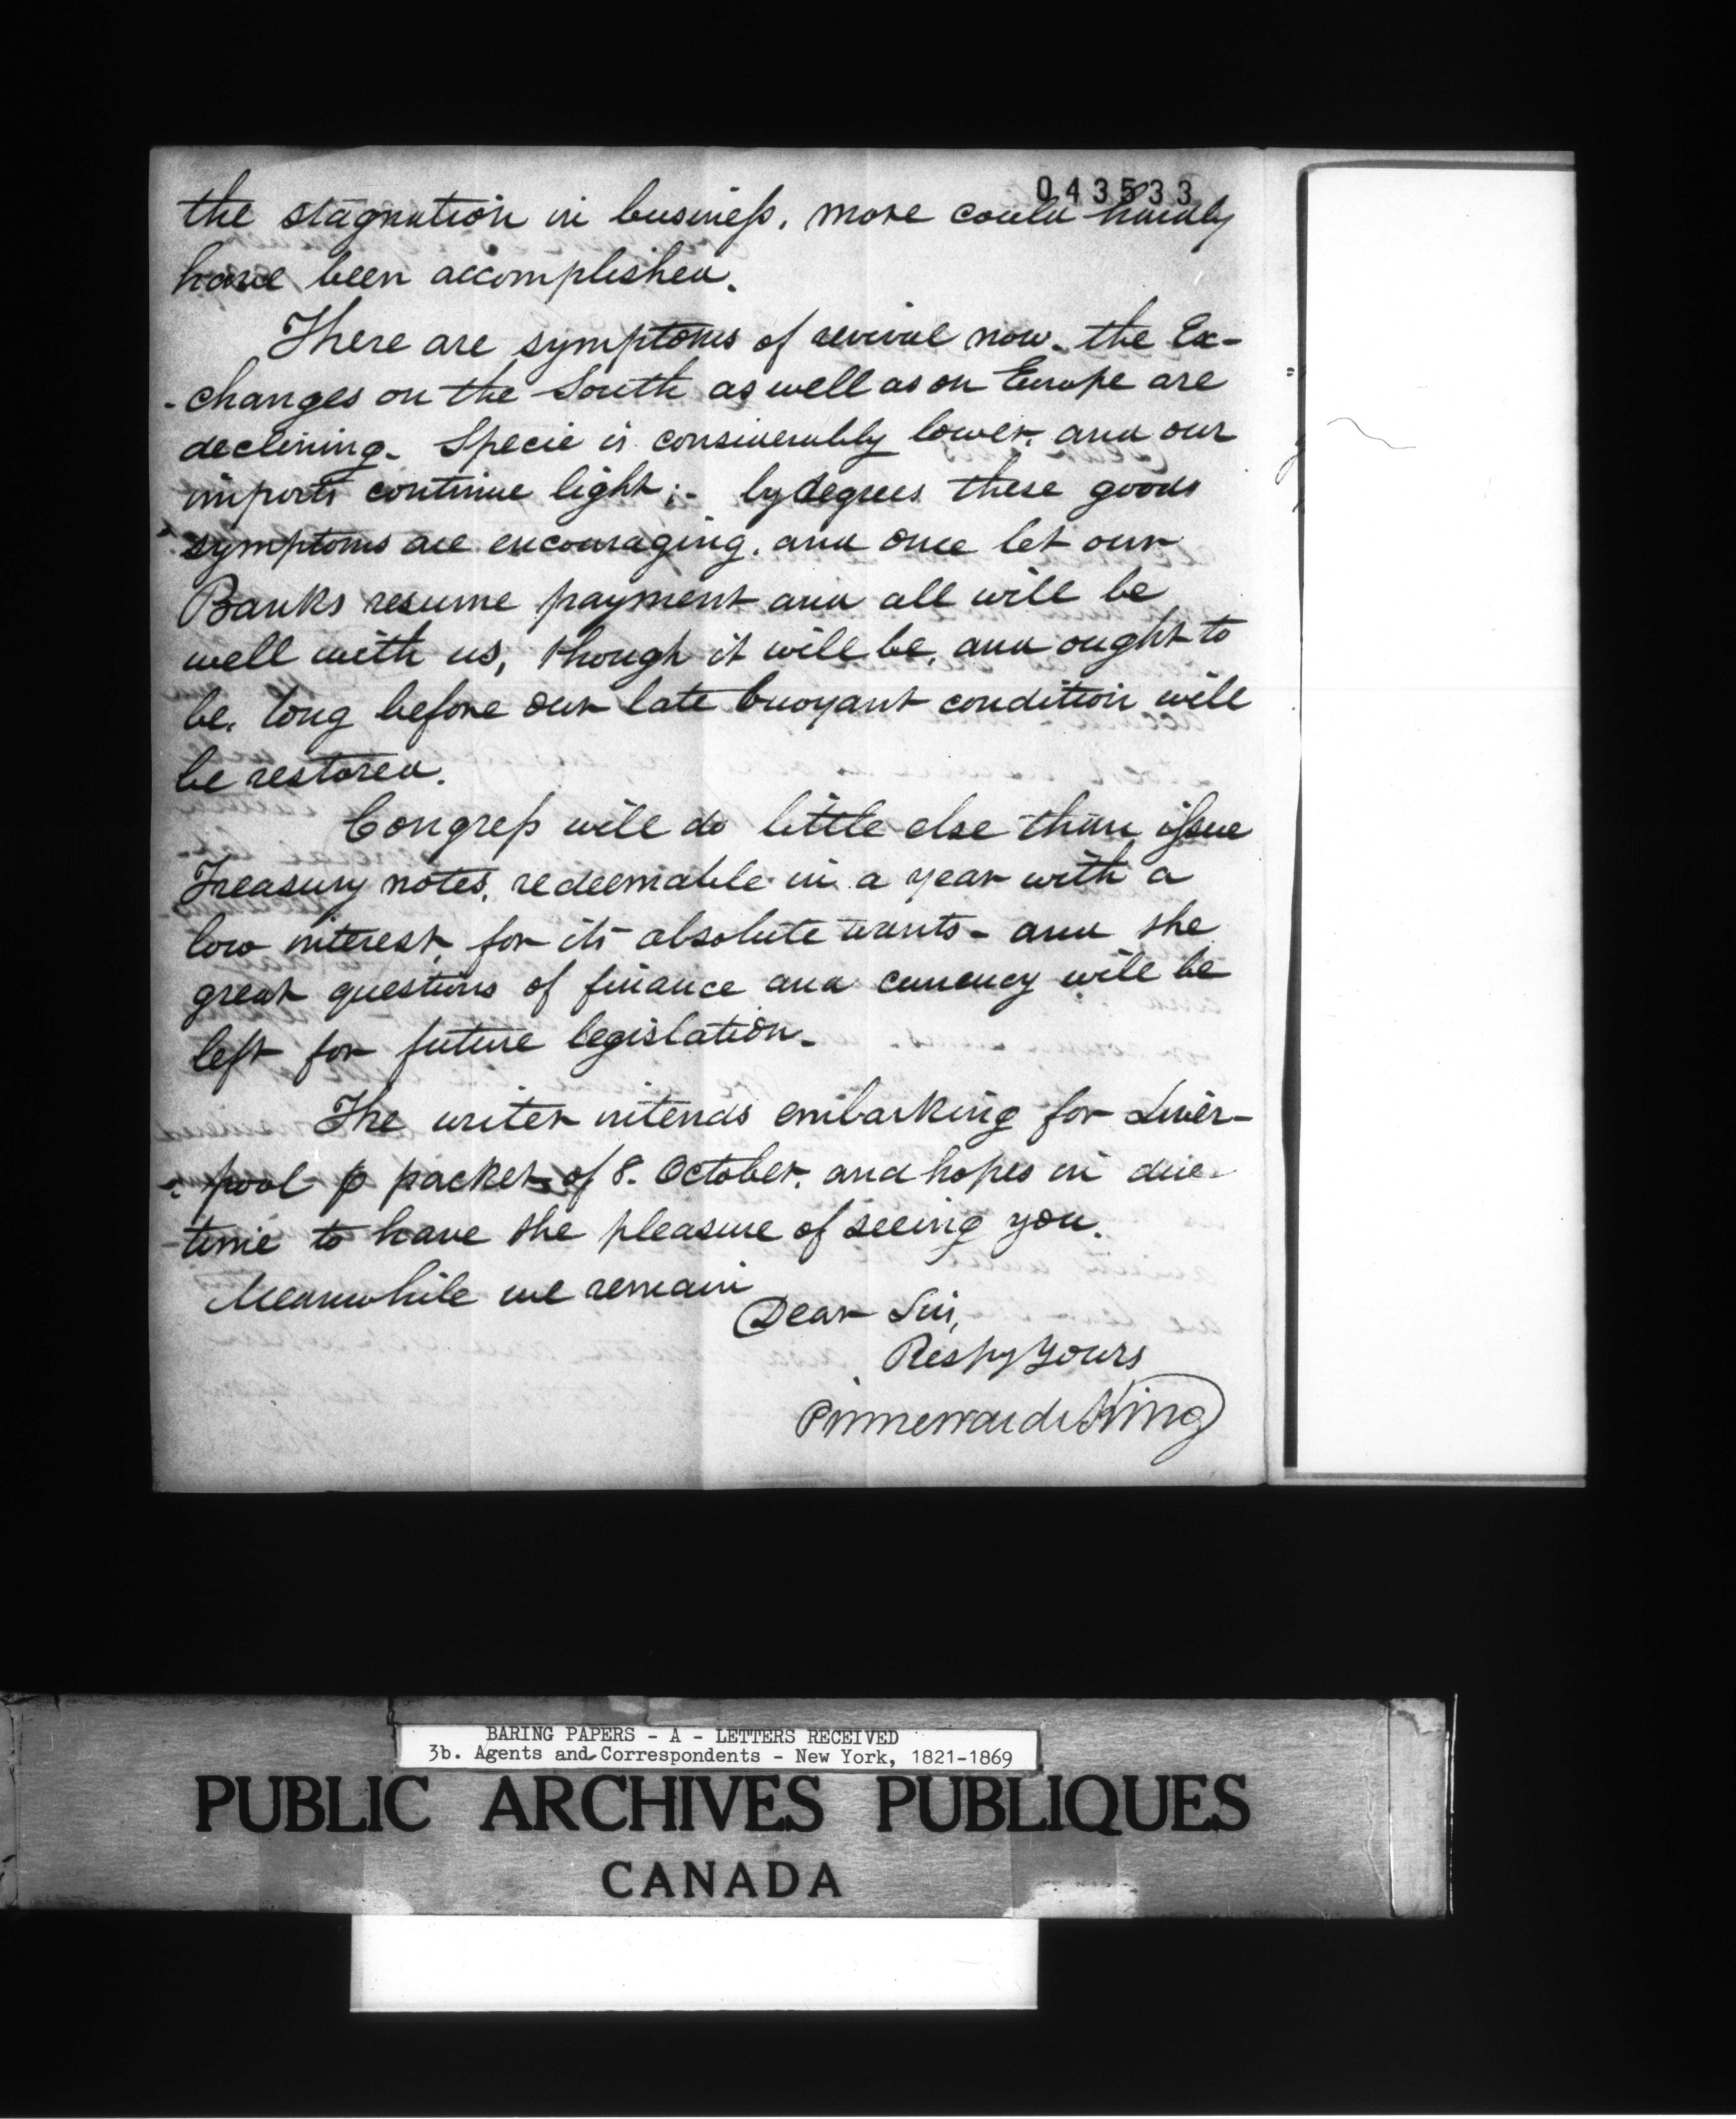 043533
the stagnation in business, more could hardly
have been accomplished.
There are symptoms of revival now. the Ex-
-changes on the South as well as on Europe are
declining. Specie is considerably lower. and our
imports continue light;- by degrees these goods
symptoms are encouraging. and once let our
Banks resume payment and all will be
well with us, though it will be, and ought to
be, long before our late buoyant condition will
be restored.
Congress will do little else than issue
Treasury notes, redeemable in a year with a
low interest, for its absolute wants - and the
great questions of finance and currency will be
left for future legislation.
The writer intends embarking for Liver-
-pool p packet of 8. October. and hopes in due
time to have the pleasure of seeing you.
Meanwhile we remain
Dear Sir,
Respy Yours
King
BARING PAPERS - A - LETTERS RECEIVED
3b. Agents and Correspondents - New York, 1821-1869
PUBLIC ARCHIVES PUBLIQUES
CANADA